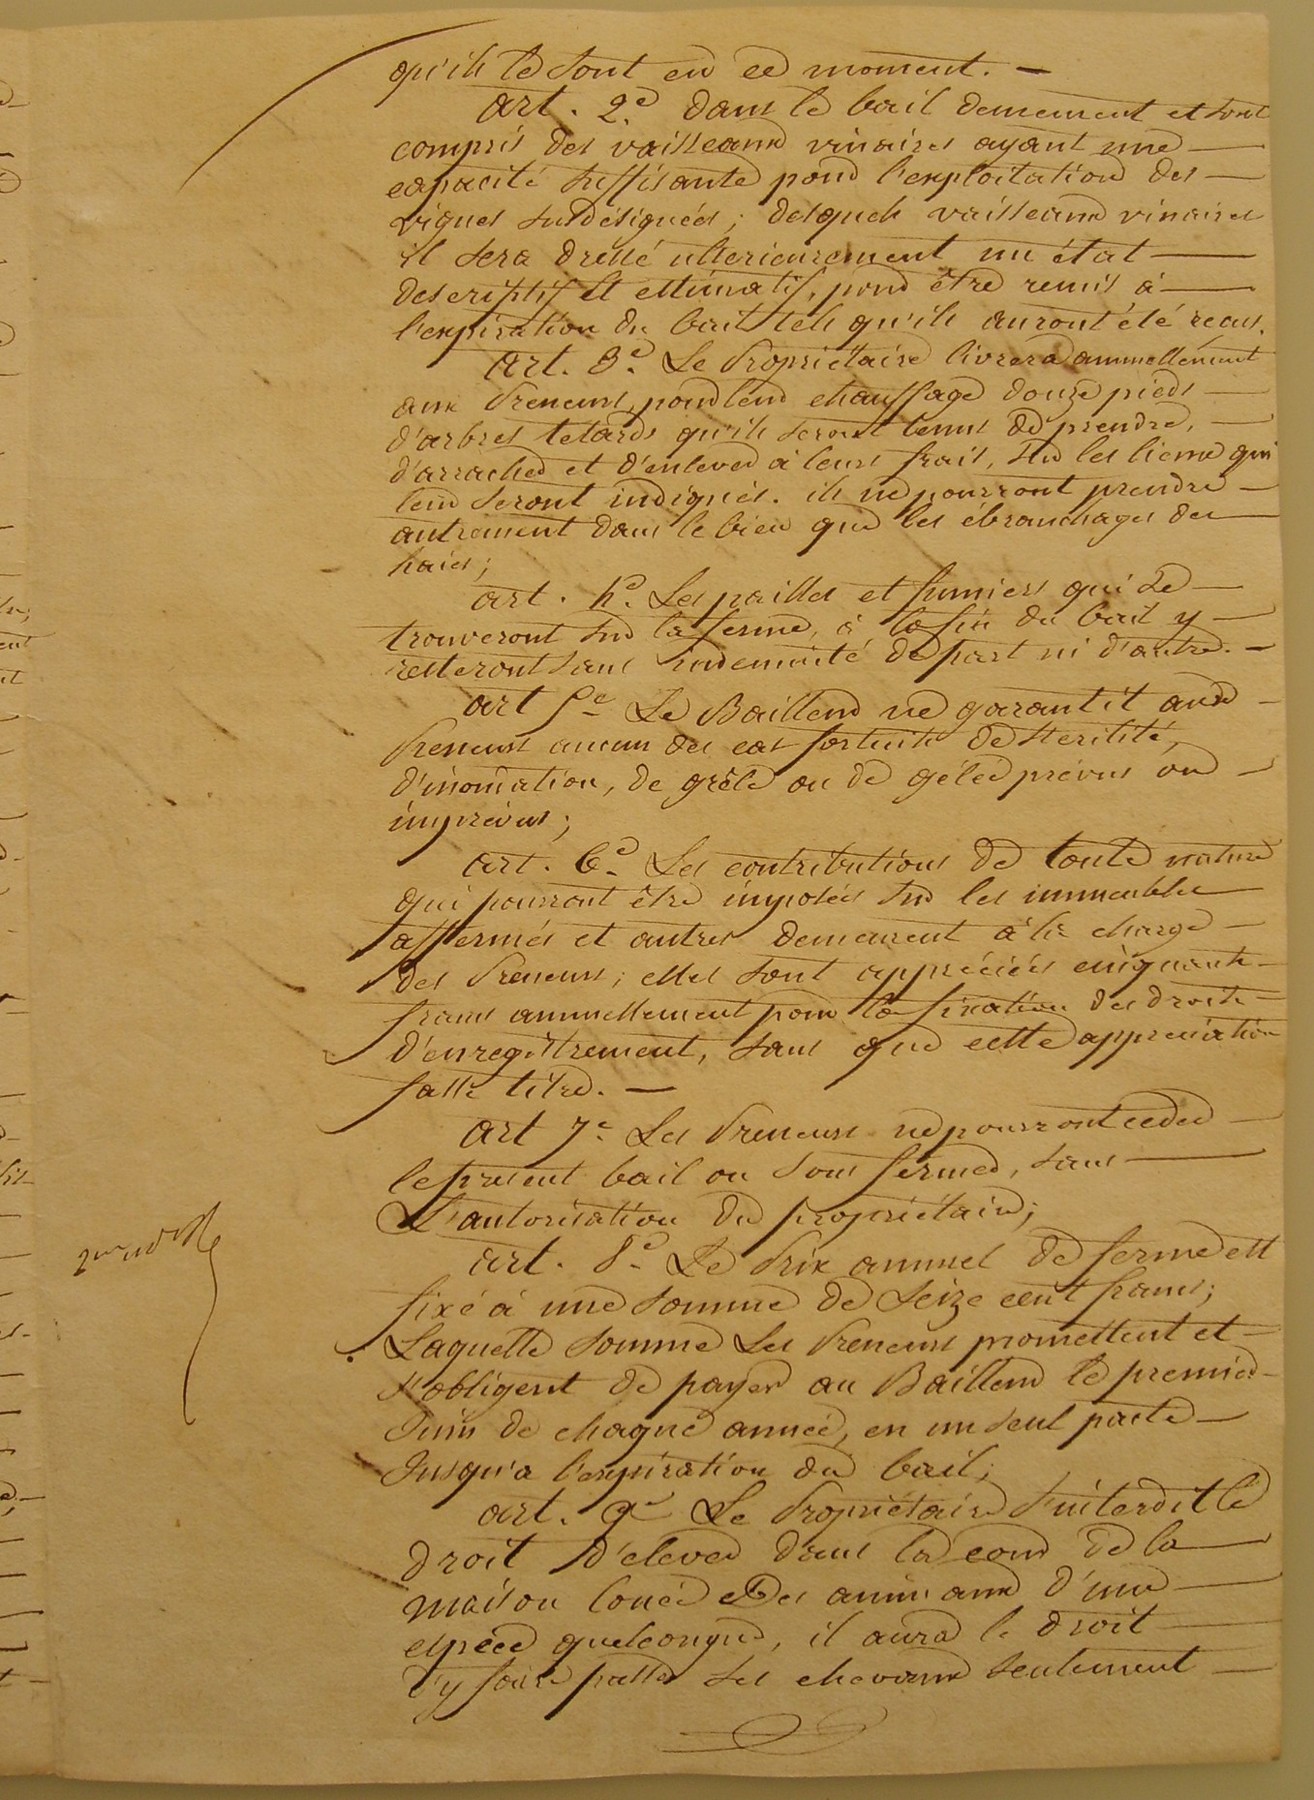 qu'ils le sont en ce moment. —
art. 2e. dans le bail demeurent et sont
compris des vaisseaux vinaires ayant une —
capacité suffisante pour l'exploitation des —
vignes susdésignées ; desquels vaisseaux vinaires
il sera dressé ulterieurement un état —
descriptif et estimatif, pour être remis à —
l'expiration du bail tels qu'ils auront été reçus.
art. 3e. Le Propriétaire livrera annuellement
aux Preneurs, pour leur chauffage douze pieds —
d'arbres tetards qu'ils seront tenus de prendre, —
d'arracher et d'enlever à leurs frais, sur les lieux qui
leur seront indiqués. ils ne pourront prendre —
autrement dans le bien que les ébranchages des —
haies ;
art. 4e. Les pailles et fumiers qui se —
trouveront sur la ferme, à la fin du bail y —
resteront sans indemnité de part ni d'autre. —
art 5e Le Bailleur ne garantit aux —
Preneurs aucun des cas fortuits de sterilité,
d'inondation, de grêle ou de gélée prévus ou —
imprévus ;
art. 6e. Les contributions de toute nature
qui pourront être imposées sur les immeubles
affermés et autres demeurent à la charge —
des Preneurs ; elles sont appréciées cinquante —
francs annuellement pour la fixation des droits —
d'enregistrement, sans que cette appreciation
fasse titre. —
art 7e. Les Preneurs ne pourront ceder —
le présent bail ou sous fermer, sans —
L'autorisation du propriétaire ;
art. 8e. Le Prix annuel de ferme est
fixé à une somme de Seize cent francs ;
Laquelle somme Les Preneurs promettent et —
s'obligent de payer au Bailleur le premier —
Juin de chaque année, en un seul pacte —
Jusqu'a l'expiration du bail ;
art. 9e Le Propriétaire s'interdit le
droit d'elever dans la cour de la —
maison louée des animaux d'une —
espece quelconque, il aura le droit —
d'y faire passer ses chevaux seulement —